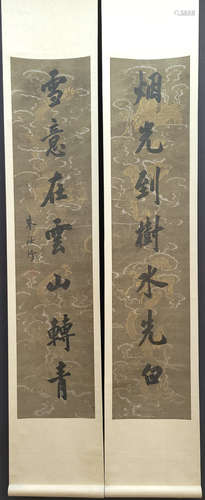 烟光到樹水先白
雪意在雲山轉青